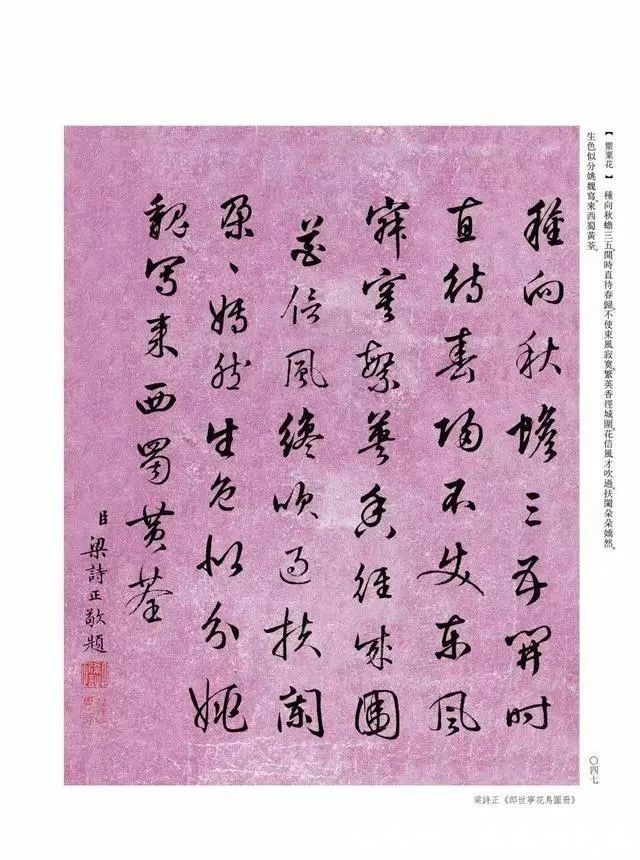 【罌粟花】 種向秋蟾三五開時直待春歸。不使東風寂寞。繁英香徑城圍。花信風才吹過。扶闌朵朵嬌然。
生色似分姚魏。寫來西蜀黃荃。
種向秋蟾三五開時
直待春歸不使東風
寂寞繁英香徑成圍
花信風纔吹過扶闌
朵〻嫣然生色似分姚
魏寫來西蜀黃荃
臣梁詩正敬題
〇四七
梁詩正《郎世寧花鳥圖冊》